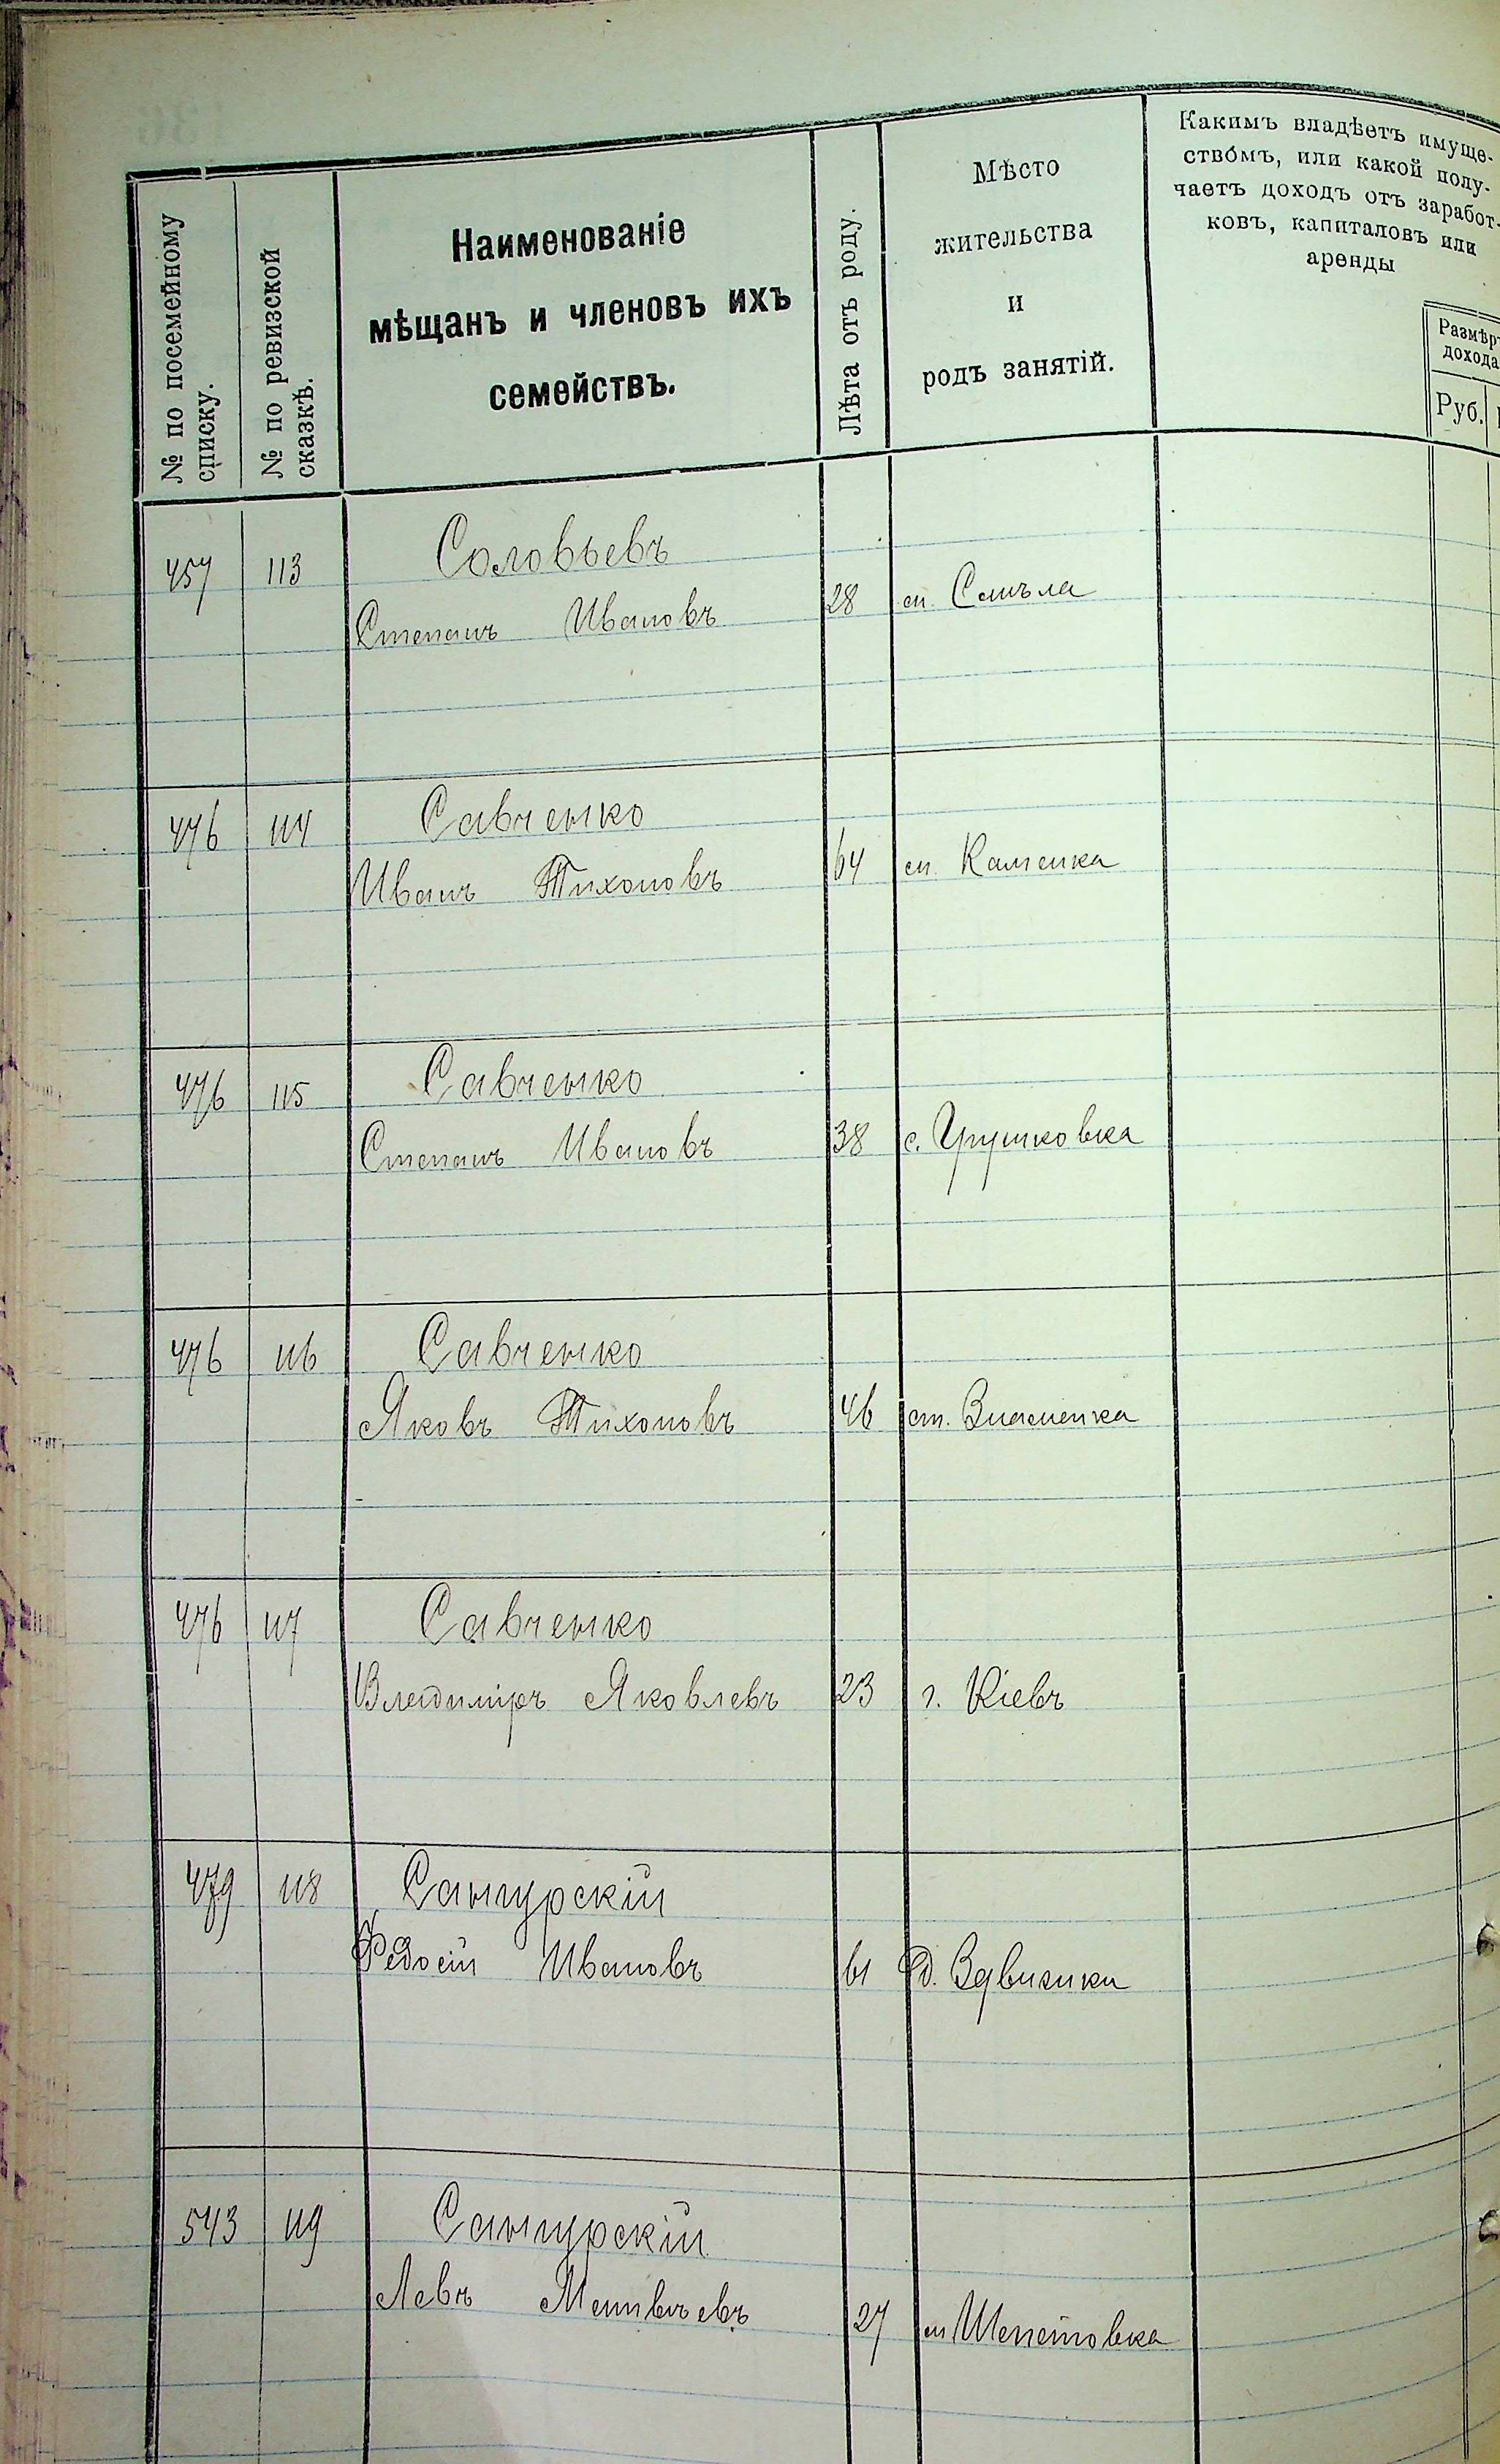 № по посемейному
списку.
№ по ревизской
сказкѣ.
Наименованіе
мѣщанъ и членовъ ихъ
семействъ.
Лѣта отъ роду.
Мѣсто
жительства
и
родъ занятій.
Какимъ владѣетъ имуще-
ствомъ, или какой полу-
чаетъ доходъ отъ заработ-
ковъ, капиталовъ или
аренды
Размѣръ
дохода
Руб.
457 113 Соловьевъ
Степанъ Ивановъ 28 м. Смѣла
476 114 Савченко
Иванъ Тихоновъ 64 м. Каменка
476 115 Савченко
Степанъ Ивановъ 38 с. Грушковка
476 116 Савченко
Яковъ Тихоновъ 46 ст. Знаменка
476 117 Савченко
Владиміръ Яковлевъ 23 г. Кіевъ
479 118 Сангурскій
Федосій Ивановъ 61 д. Здвижики
543 119 Сангурскій
Левъ Матвѣевъ 27 м Шепетовка